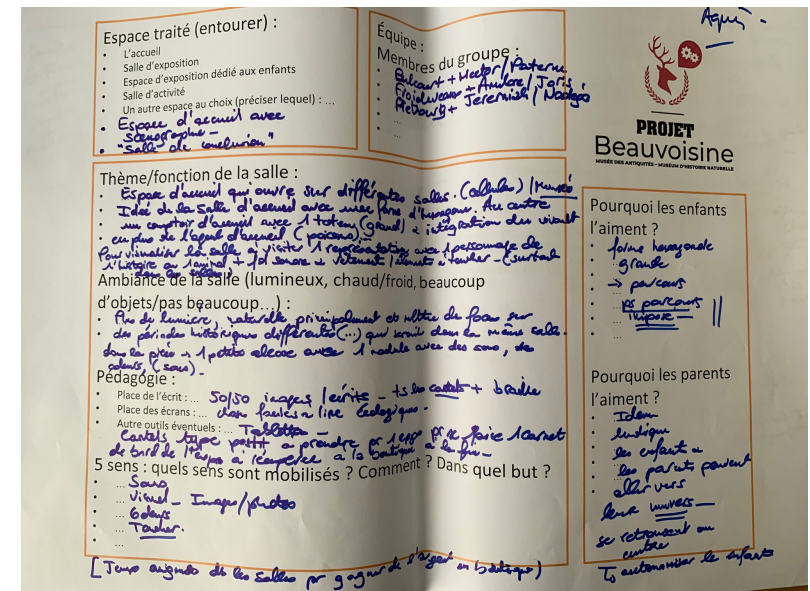 Espace traité (entourer) :
• L'accueil
• Salle d'exposition
• Espace d'exposition dédié aux enfants
• Salle d'activité
• Un autre espace au choix (préciser lequel) : ...
• Espace d'accueil avec
scénographie -
• "Salle de conclusion"
Équipe :
Membres du groupe :
+ Hector /
/ Joris
+ Jeremiah /
• ...
• ...
PROJET
Beauvoisine
MUSÉE DES ANTIQUITÉS - MUSÉUM D'HISTOIRE NATURELLE
Thème/fonction de la salle :
• Espace d'accueil qui ouvre sur différentes salles. (cellules) / Musée
• Idée de la salle d'accueil avec une forme d'hexagone. Au centre
• un comptoir d'accueil avec 1 totem (grand) + intégration du vivant
• en plus de l'agent d'accueil (poissons) -
Pour visualiser la salle à visiter 1 représentation avec 1 personnage de
l'histoire ou 1 animal + fond sonore + vêtement / éléments à toucher - (surtout
dans les salles)
Ambiance de la salle (lumineux, chaud/froid, beaucoup
d'objets/pas beaucoup...) :
• Plus de lumière, naturelle principalement et mettre de focus sur
• des périodes historiques différentes (...) qui serait dans la même salle.
dans les pièces → 1 petite alcove avec 1 module avec des sons, des
odeurs, (sens).
Pédagogie :
• Place de l'écrit : ... 50/50 images / écrits - ts les cartels + braille
• Place des écrans : ...
• Autre outils éventuels : ... Tablettes -
Cartels type petit à prendre pr 1 expo pr faire 1 carnet
de bord de l'expo à récupérer à la boutique à la fin -
5 sens : quels sens sont mobilisés ? Comment ? Dans quel but ?
• ... Sons
• ... Visuel - Images/photos
• ... Odeurs
• ... Toucher.
• ...
[Jeux origindo ds les salles pr gagner de l'argent en boutique)
Pourquoi les enfants
l'aiment ?
• forme hexagonale
• grande
• → parcours
• ps parcours
• imposé -
Pourquoi les parents
l'aiment ?
• Idem
• ludique
• les enfants &
• les parents peuvent
• aller vers
leur univers -
se retrouvent au
centre
↳ autonomiser les enfants